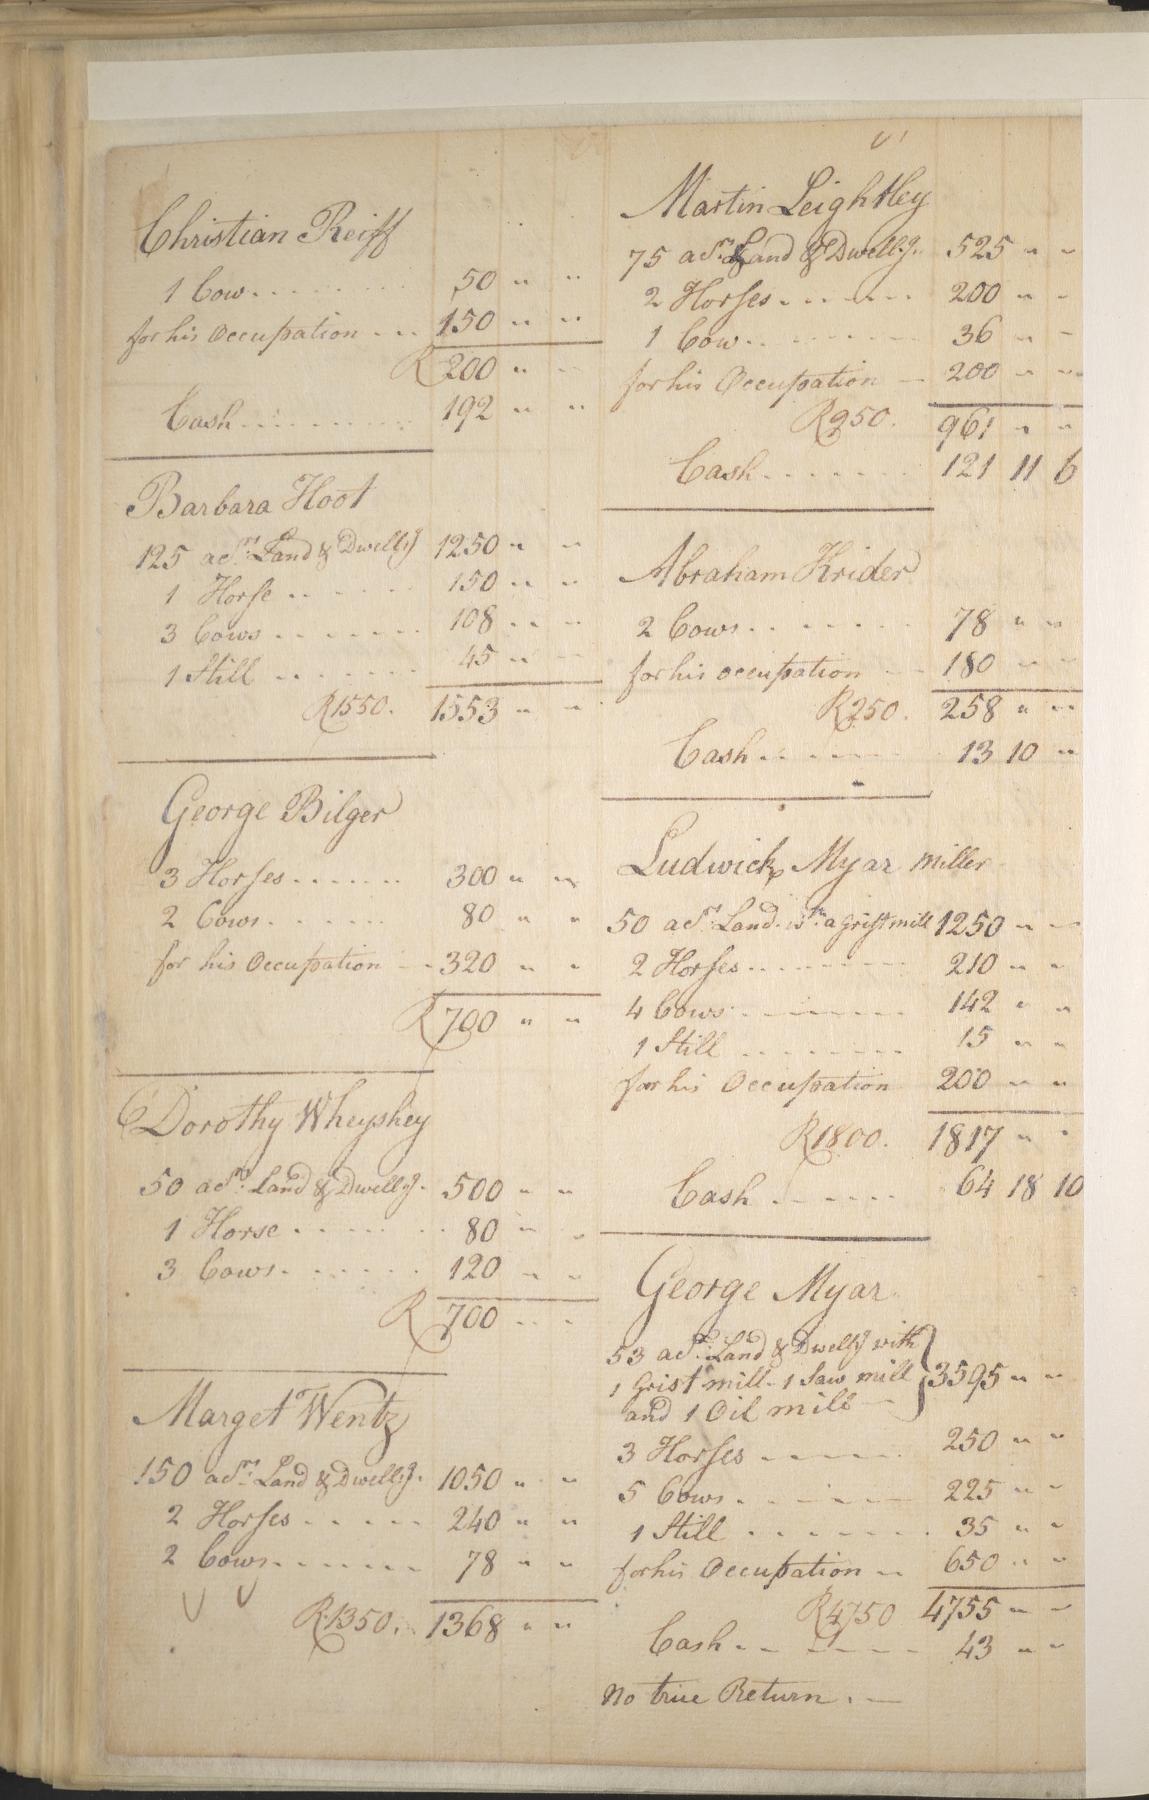 Christian Reiff
1 Cow - - - - - - - 50 " "
for his Occupation - - - 150 " "
R 200 " "
Cash - - - - - - - - 192 " "
Barbara Hoot
125 acrs. Land & Dwellg 1250 " "
1 Horse - - - - - - 150 " "
3 Cows - - - - - - - 108 " "
1 Still - - - - - - 45 " "
R1550. 1553 " "
George Bilger
3 Horses - - - - - - 300 " "
2 Cows - - - - - - 80 " "
for his Occupation - - 320 " "
R 700 " "
Dorothy Wheyshey
50 acrs. Land & Dwellg. 500 " "
1 Horse - - - - - - - 80 " "
3 Cows - - - - - - - 120 " "
R 700 " "
Marget Wentz
150 acrs. Land & Dwellg. 1050 " "
2 Horses - - - - - 240 " "
2 Cows - - - - - - - 78 " "
R1350. 1368 " "
Martin Leightley
75 acrs. Land & Dwellg. 525 " "
2 Horses - - - - - - 200 " "
1 Cow - - - - - - - - 36 " "
for his Occupation - 200 " "
R950. 961 " "
Cash - - - - - - 121 11 6
Abraham Krider
2 Cows - - - - - - - 78 " "
for his occupation - - 180 " "
R250. 258 " "
Cash - - - - - - 13 10 "
Ludwick Myar miller
50 acrs. Land wth. a Grist mill 1250 " "
2 Horses - - - - - - - - 210 " "
4 Cows - - - - - - - - 142 " "
1 Still - - - - - - - - 15 " "
for his Occupation 200 " "
R1800. 1817 " "
Cash - - - - - - 64 18 10
George Myar
53 acrs. Land & Dwellg with
1 Grist mill - 1 Saw mill } 3595 " "
and 1 Oil mill -
3 Horses - - - - - - 250 " "
5 Cows - - - - - - - 225 " "
1 Still - - - - - - - - 35 " "
for his Occupation - - 650 " "
R4750 4755 " "
Cash - - - - - - - 43 " "
No true Return. -